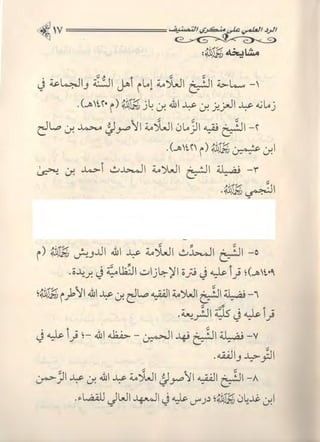 الرد العلمي على منكري التصنيف
١٧
مشايخه رحمه الله:
١- سماحة الشيخ العلامة إمام أهل السنة والجماعة في
زمانه عبد العزيز بن عبد الله بن باز رحمه الله (م ١٤٢٠هـ).
٢- الشيخ فقيه الزمان العلامة الأصولي محمد بن صالح
ابن عثيمين رحمه الله (م ١٤٢١هـ).
٣- فضيلة الشيخ العلامة المحدث أحمد بن يحيى
النجمي رحمه الله.
٥- الشيخ المحدث العلامة عبد الله الدويش رحمه الله (م
١٤٠٩هـ)؛ قرأ عليه في فترة الإجازات النظامية في بريدة.
٦- فضيلة الشيخ العلامة الفقيه صالح بن عبد الله الأطرم رحمه الله؛
قرأ عليه في كلية الشريعة.
٧- فضيلة الشيخ فهد الحمين - حفظه الله -؛ قرأ عليه في
التوحيد والفقه.
٨- الشيخ الفقيه الأصولي العلامة عبد الله بن عبد الرحمن
ابن غديان رحمه الله؛ درس عليه في المعهد العالي للقضاء.